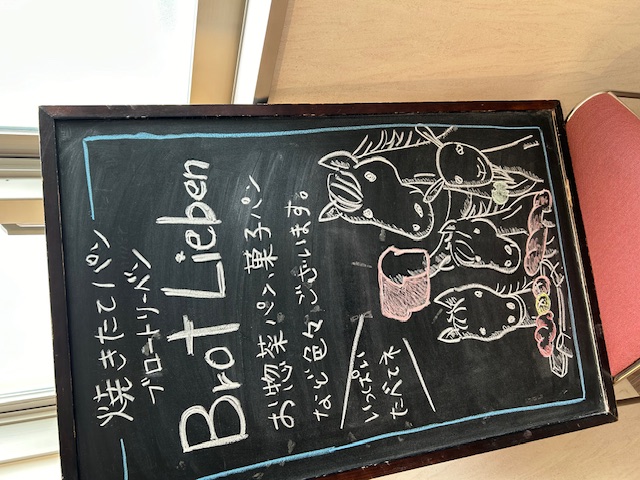 焼きたてパン
ブロートリーベン
Brot Lieben
お惣菜パン、菓子パン
など色々ございます。
いっぱい
たべてネ